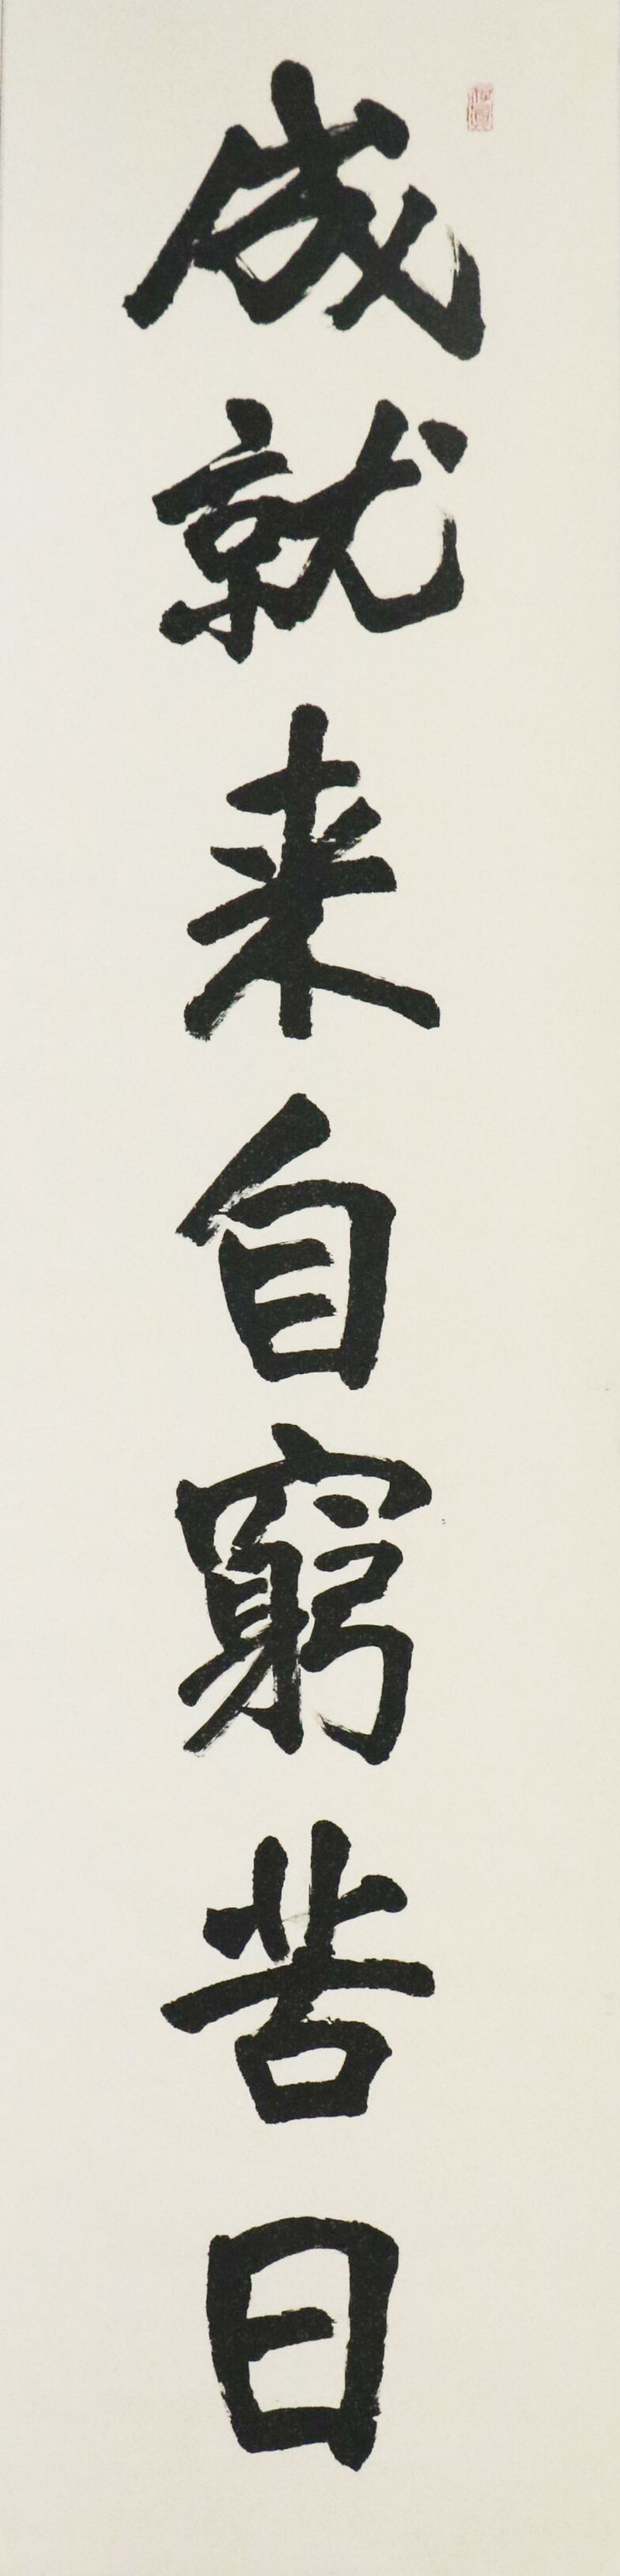 成就来自窮苦日